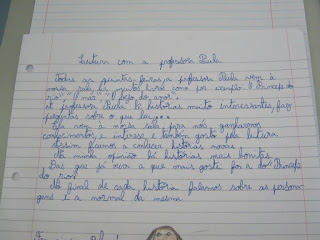 Leitura com a professora Paula
Todas as quintas-feiras, a professora Paula vem à
nossa sala, lê muitos livros como por exemplo: "O Príncipe do
rio", "O poço do amor".
A professora Paula lê histórias muito interessantes, faz
perguntas sobre o que leu...
Ela vem à nossa sala para nós ganharmos
conhecimentos, e interesse e também gosto pela leitura
Assim ficamos a conhecer histórias novas.
Na minha opinião há histórias mais bonitas.
Das que já ouvi a que mais gostei foi a do "Príncipe
do rio".
No final de cada história falamos sobre as person-
gens e a moral da mesma